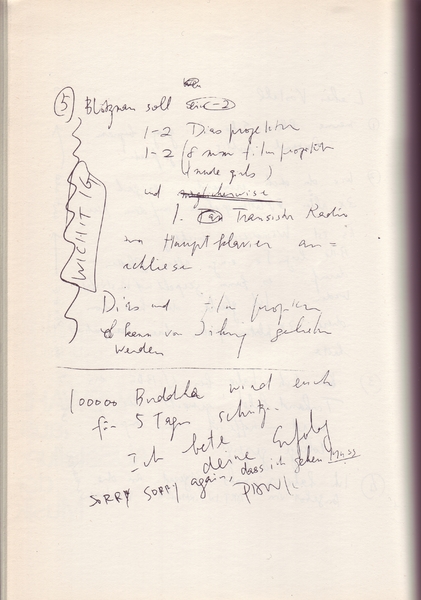 ⑤ Blitzman soll
1-2 Diasprojektor
1-2 (8 mm film projektor
(nude girls)
und möglicherweise
1. Transistor Radio
vom Hauptklavier an=
schliese
WICHTIG
Dias und film projektor
kann von geliehen
werden
100000 Buddha wird euch
für 5 Tagen schutz..
Ich bete deine Erfolg
SORRY SORRY again, dass ich gehen muss
PAIK